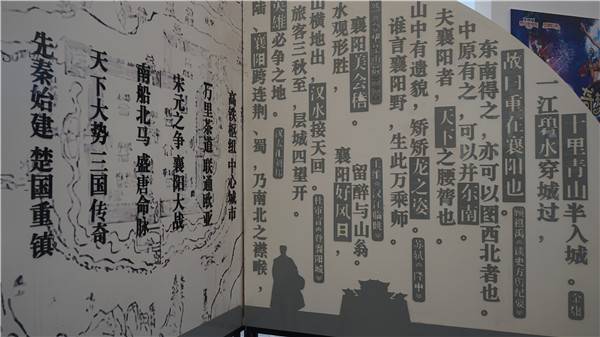 十里青山半入城。
一江碧水穿城过，
故曰重在襄阳也。 顾祖禹《读史方舆纪要》
东南得之，亦可以图西北者也。
中原有之，可以并东南，
夫襄阳者，天下之腰膂也。
山中有遗貌，矫矫龙之姿。 苏轼《隆中》
谁言襄阳野，生此万乘师。
襄阳美会稽。 留醉与山翁。 王维《汉江临眺》
水观形胜， 襄阳好风日，
山横地出，汉水接天回。 杜审言《登襄阳城》
旅客三秋至，层城四望开。
英雄必争之地。
陆，襄阳跨连荆、蜀，乃南北之襟喉，
先秦始建 楚国重镇
天下大势 三国传奇
南船北马 盛唐命脉
宋元之争 襄阳大战
万里茶道 联通欧亚
高铁枢纽 中心城市